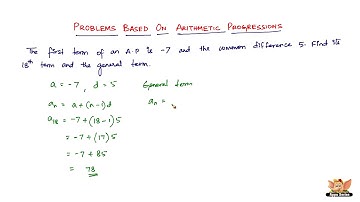 Problems Based On Arithmetic Progressions
The first term of an A.P is -7 and the common difference 5. Find its
18th term and the general term.
a = -7 , d = 5
aₙ = a + (n-1)d
a₁₈ = -7 + (18-1)5
= -7 + (17)5
= -7 + 85
= 78
General term
aₙ =